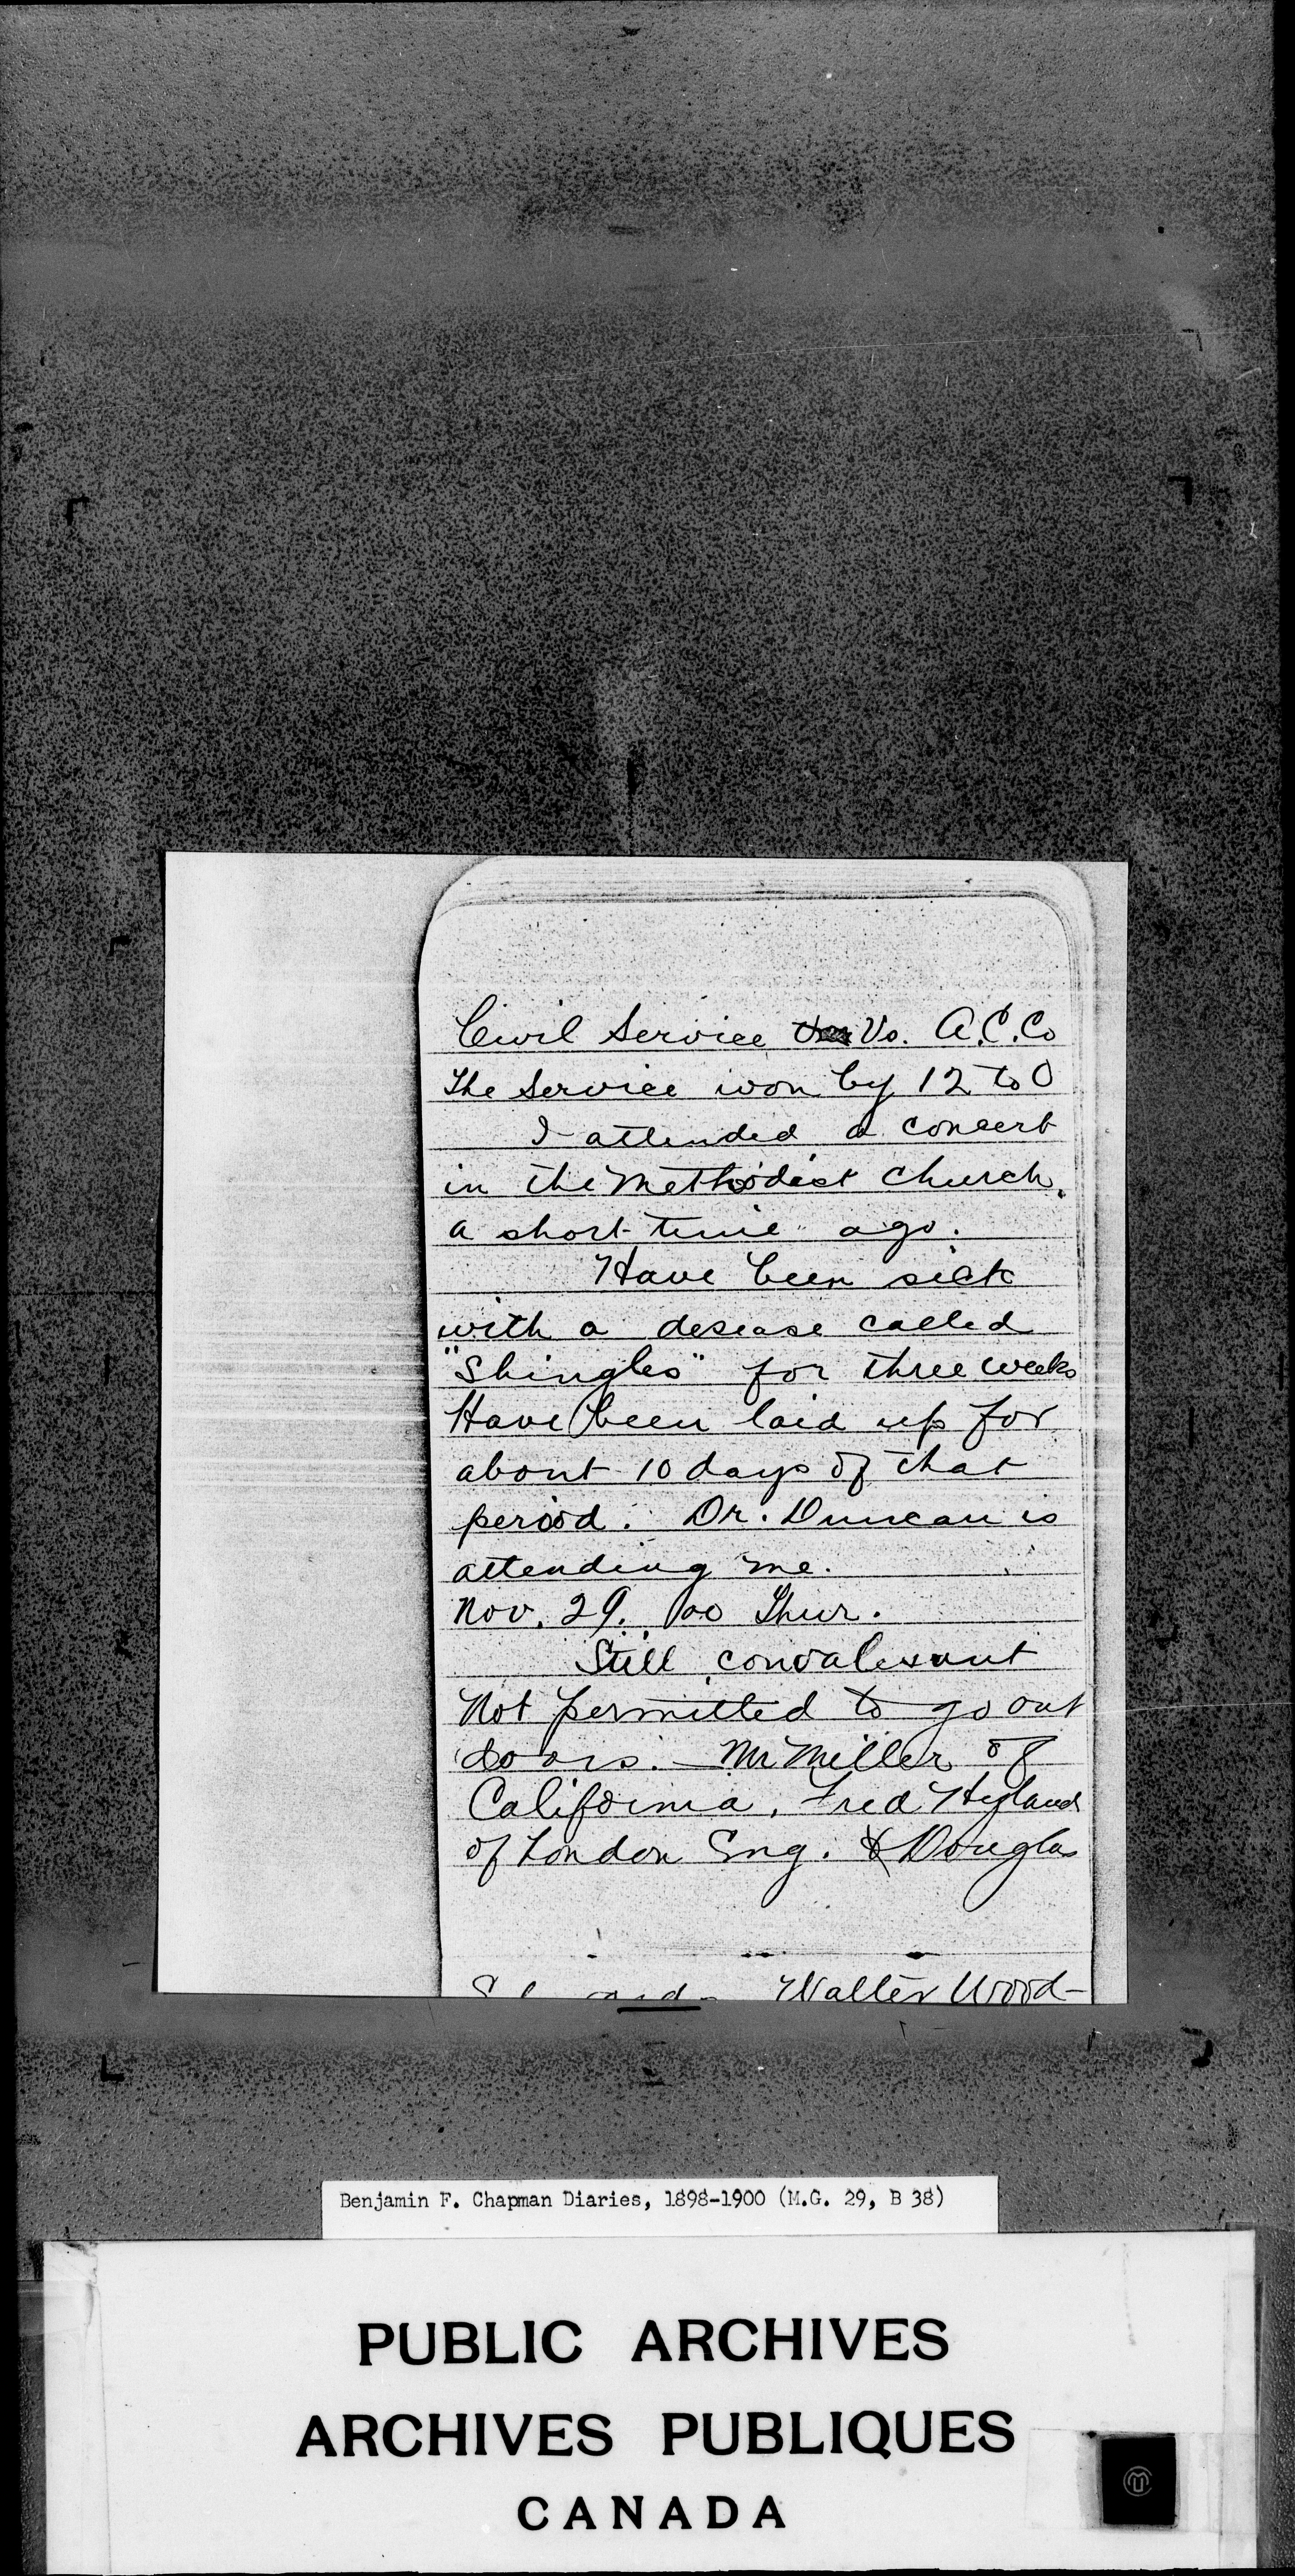 Civil Service Vs. A.C.Co
The Service won by 12 to 0
I attended a concert
in the Methodist Church,
a short time ago.
Have been sick
with a desease called
"Shingles" for three weeks
Have been laid up for
about 10 days of that
period. Dr. Duncan is
attending me.
Nov. 29. 00 Thur.
Still convalesant
Not permitted to go out
doors. — Mr Miller of
California, Fred Hyland
of London Eng. & Douglas
Walter Wood-
Benjamin F. Chapman Diaries, 1898-1900 (M.G. 29, B 38)
PUBLIC ARCHIVES
ARCHIVES PUBLIQUES
CANADA